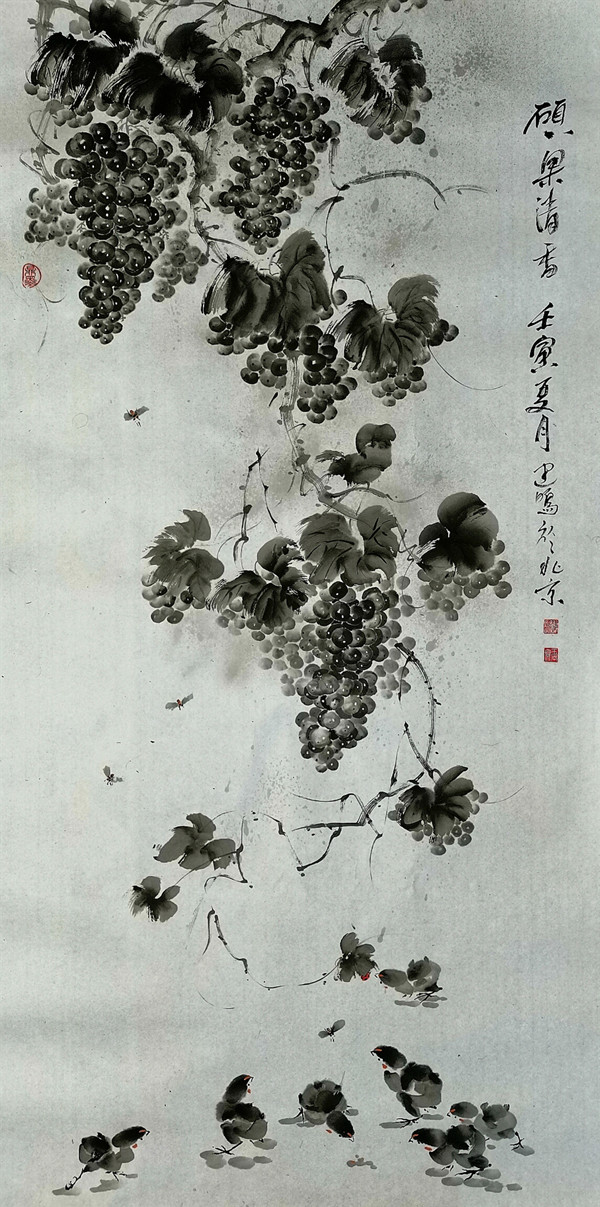 硕果清香 壬寅夏月 鸣於北京